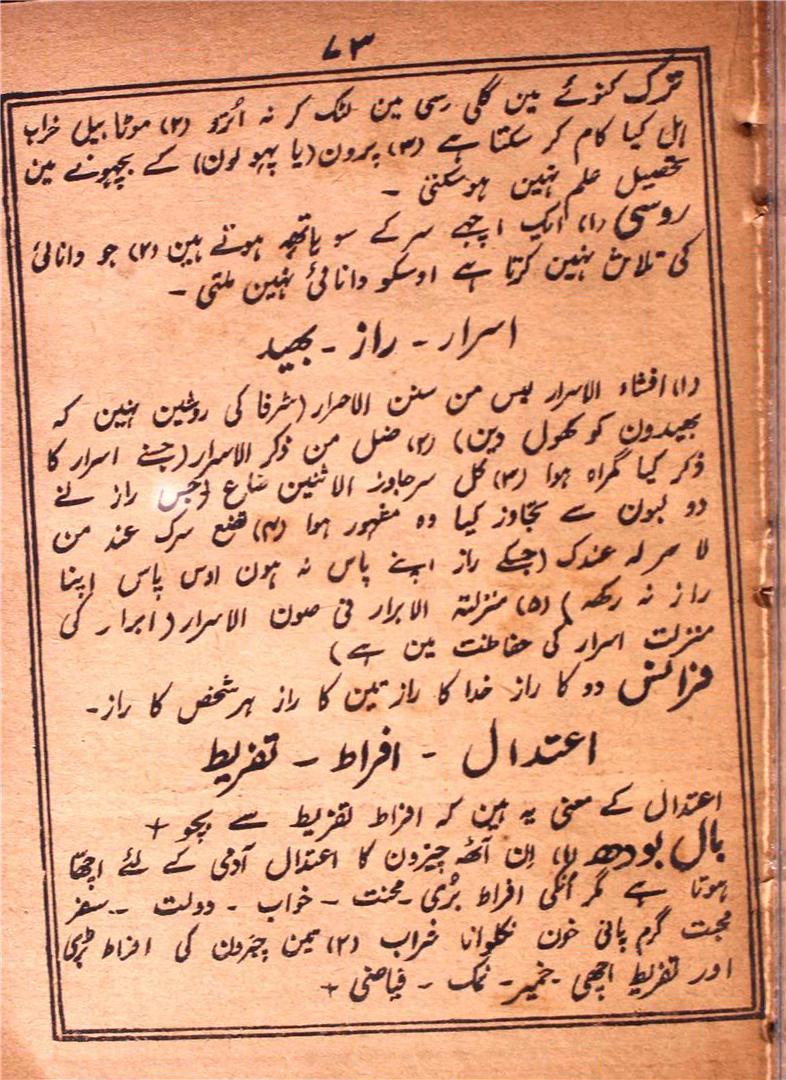 ۷۳
ترک کنوئے مین گلی رسی مین لٹک کر نہ اُترو (۲) موٹا بیل خراب
ہل کیا کام کر سکتا ہے (۳) پرون (یا پہولون) کے بچھونے مین
تحصیل علم نہین ہوسکتی ۔
روسی (۱) ایک اچھے سر کے سو ہاتھہ ہوتے ہین (۲) جو دانائی
کی تلاش نہین کرتا ہے اوسکو دانائی نہین ملتی ۔
اسرار ۔ راز ۔ بھید
(۱) افشاء الاسرار لیس من سنن الاحرار (شرفا کی روشین نہین کہ
بھیدون کو کھول دین) (۲) ضل من ذکر الاسرار (جسنے اسرار کا
ذکر کیا گمراہ ہوا (۳) کل سر جاوز الاثنین شاع (جس راز نے
دو لبون سے تجاوز کیا وہ مشہور ہوا (۴) تضع سرک عند من
لا سر لہ عندک (جسکے راز اپنے پاس نہ ہون اوس پاس اپنا
راز نہ رکھہ) (۵) منزلتہ الابرار فی صون الاسرار (ابرار کی
منزلت اسرار کی حفاظت مین ہے)
فرانس دو کا راز خدا کا راز تین کا راز ہر شخص کا راز۔
اعتدال ۔ افراط ۔ تفریط
اعتدال کے معنی یہ ہین کہ افراط تفریط سے بچو +
بال بودھ (۱) اِن آٹھہ چیزون کا اعتدال آدمی کے لئے اچھّا
ہوتا ہے مگر اُنکی افراط بُری ۔ محنت ۔ خواب ۔ دولت ۔ سفر
محبت گرم پانی خون نکلوانا شراب (۲) تین چیزون کی افراط بُری
اور تفریط اچھی ۔ خمیر ۔ نمک ۔ فیاضی +